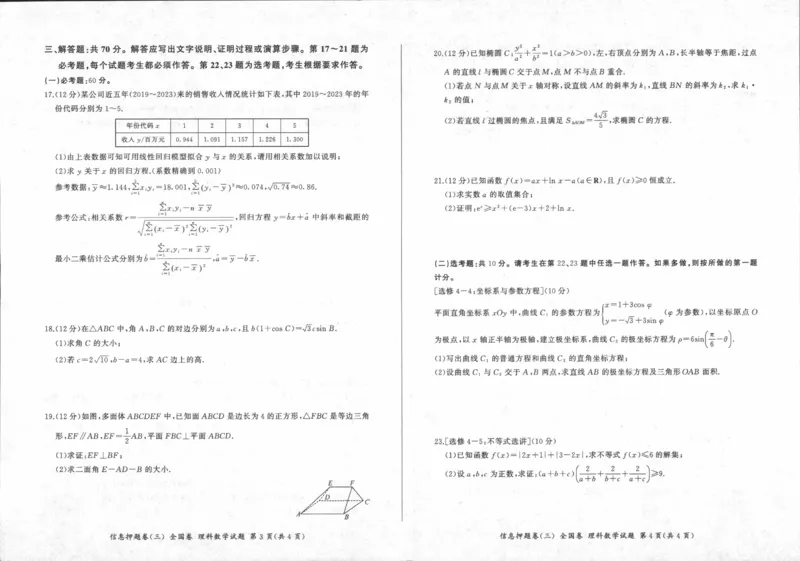 三、解答题:共 70 分。解答应写出文字说明、证明过程或演算步骤。第 17~21 题为
必考题,每个试题考生都必须作答。第 22、23 题为选考题,考生根据要求作答。
(一)必考题:60 分。
17.(12 分)某公司近五年(2019~2023)来的销售收入情况统计如下表,其中 2019~2023 年的年
份代码分别为 1~5.
年份代码 x 1 2 3 4 5
收入 y/百万元 0.944 1.091 1.157 1.226 1.300
(1)由上表数据可知可用线性回归模型拟合 y 与 x 的关系,请用相关系数加以说明;
(2)求 y 关于 x 的回归方程.(系数精确到 0.001)
参考数据:ȳ≈1.144,∑_{i=1}^{5}x_iy_i=18.001,∑_{i=1}^{5}(y_i-ȳ)²≈0.074,√0.74≈0.86.
参考公式:相关系数 r=(∑_{i=1}^{n}x_iy_i-n x̄ ȳ)/√(∑_{i=1}^{n}(x_i-x̄)²∑_{i=1}^{n}(y_i-ȳ)²),回归方程 ŷ=b̂x+â 中斜率和截距的
最小二乘估计公式分别为 b̂=(∑_{i=1}^{n}x_iy_i-n x̄ ȳ)/(∑_{i=1}^{n}(x_i-x̄)²),â=ȳ-b̂x̄.
18.(12 分)在△ABC 中,角 A,B,C 的对边分别为 a,b,c,且 b(1+cos C)=√3csin B.
(1)求角 C 的大小;
(2)若 c=2√10,b-a=4,求 AC 边上的高.
19.(12 分)如图,多面体 ABCDEF 中,已知面 ABCD 是边长为 4 的正方形,△FBC 是等边三角
形,EF∥AB,EF=1/2AB,平面 FBC⊥平面 ABCD.
(1)求证:EF⊥BF;
(2)求二面角 E-AD-B 的大小.
E F
D C
A B
信息押题卷(三) 全国卷 理科数学试题 第 3 页(共 4 页)
20.(12 分)已知椭圆 C:y²/a²+x²/b²=1(a>b>0),左、右顶点分别为 A,B,长半轴等于焦距,过点
A 的直线 l 与椭圆 C 交于点 M,点 M 不与点 B 重合.
(1)若点 N 与点 M 关于 x 轴对称,设直线 AM 的斜率为 k₁,直线 BN 的斜率为 k₂,求 k₁·
k₂ 的值;
(2)若直线 l 过椭圆的焦点,且满足 S_{△AOM}=4√3/5,求椭圆 C 的方程.
21.(12 分)已知函数 f(x)=ax+ln x-a(a∈R),且 f(x)≥0 恒成立.
(1)求实数 a 的取值集合;
(2)证明:eˣ≥x²+(e-3)x+2+ln x.
(二)选考题:共 10 分。请考生在第 22、23 题中任选一题作答。如果多做,则按所做的第一题
计分。
[选修 4-4:坐标系与参数方程](10 分)
平面直角坐标系 xOy 中,曲线 C₁ 的参数方程为{x=1+3cos φ y=-√3+3sin φ (φ 为参数),以坐标原点 O
为极点,以 x 轴正半轴为极轴,建立极坐标系,曲线 C₂ 的极坐标方程为 ρ=6sin(π/6-θ).
(1)写出曲线 C₁ 的普通方程和曲线 C₂ 的直角坐标方程;
(2)设曲线 C₁ 与 C₂ 交于 A,B 两点,求直线 AB 的极坐标方程及三角形 OAB 面积.
23.[选修 4-5:不等式选讲](10 分)
(1)已知函数 f(x)=|2x+1|+|3-2x|,求不等式 f(x)≤6 的解集;
(2)设 a,b,c 为正数,求证:(a+b+c)(2/(a+b)+2/(b+c)+2/(a+c))≥9.
信息押题卷(三) 全国卷 理科数学试题 第 4 页(共 4 页)